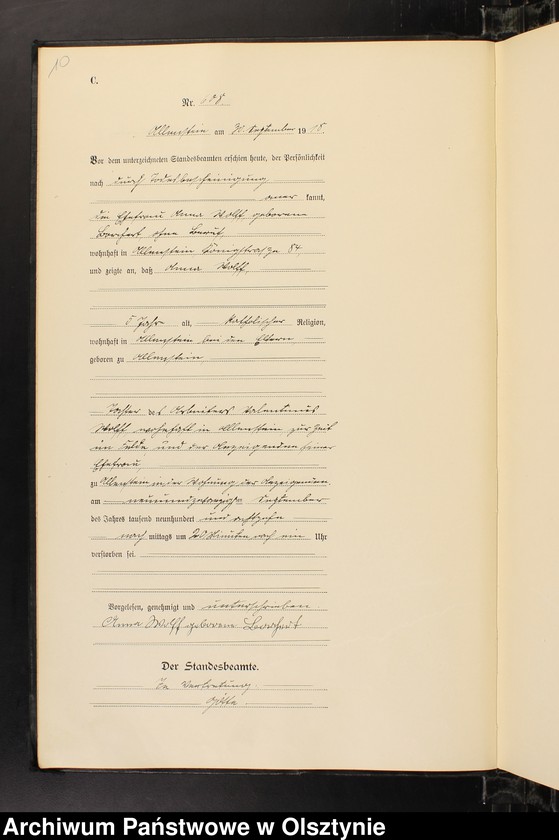 10
C.
Nr. 608
Allenstein am 30. September 1918.
Vor dem unterzeichneten Standesbeamten erschien heute, der Persönlichkeit
nach durch Todesbescheinigung
aner kannt,
die Ehefrau Anna Wolff geborene
Borchert ohne Beruf
wohnhaft in Allenstein Königstraße 84,
und zeigte an, daß Anna Wolff,
5 Jahr alt, katholischer Religion,
wohnhaft in Allenstein bei den Eltern
geboren zu Allenstein
Tochter des Arbeiters Valentinus
Wolff wohnhaft in Allenstein zur Zeit
im Felde und der Anzeigenden seiner
Ehefrau
zu Allenstein in der Wohnung der Anzeigenden
am neunundzwanzigsten September
des Jahres tausend neunhundert und achtzehn
nach mittags um 20 Minuten nach ein Uhr
verstorben sei.
Vorgelesen, genehmigt und unterschrieben
Anna Wolff geborene Borchert
Der Standesbeamte.
In Vertretung
Archiwum Państwowe w Olsztynie